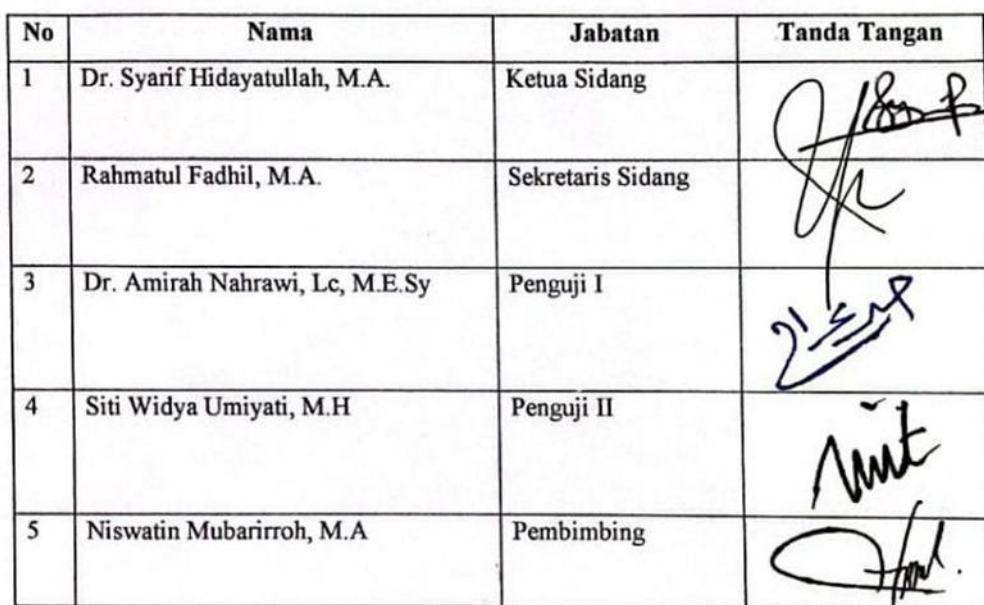 No Nama Jabatan Tanda Tangan
1 Dr. Syarif Hidayatullah, M.A. Ketua Sidang
2 Rahmatul Fadhil, M.A. Sekretaris Sidang
3 Dr. Amirah Nahrawi, Lc, M.E.Sy Penguji I
4 Siti Widya Umiyati, M.H Penguji II
5 Niswatin Mubarirroh, M.A Pembimbing